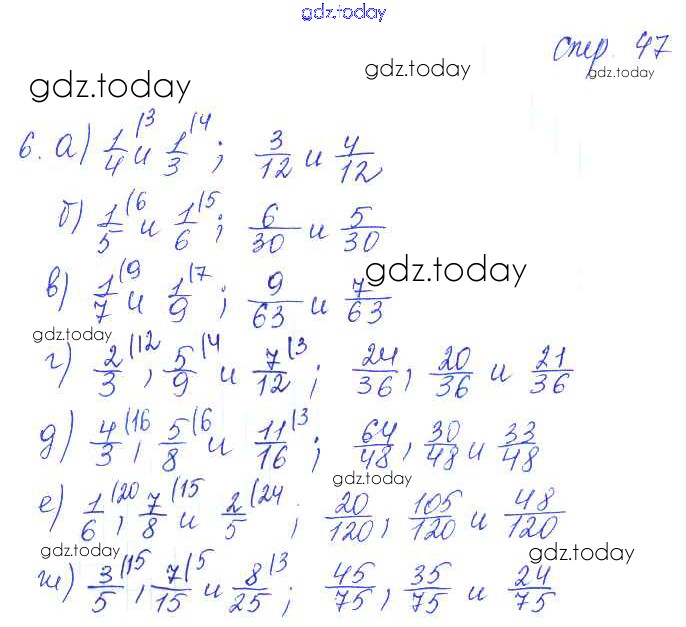 gdz.today
стр. 47
gdz.today gdz.today gdz.today
6. а) 1/4 (3 и 1/3 (4 ; 3/12 и 4/12
б) 1/5 (6 и 1/6 (5 ; 6/30 и 5/30
в) 1/7 (9 и 1/9 (7 ; 9/63 и 7/63
gdz.today
gdz.today
г) 2/3 (12 , 5/9 (4 и 7/12 (3 ; 24/36 , 20/36 и 21/36
д) 4/3 (16 , 5/8 (6 и 11/16 (3 ; 64/48 , 30/48 и 33/48
gdz.today
е) 1/6 (20 , 7/8 (15 и 2/5 (24 ; 20/120 , 105/120 и 48/120
gdz.today gdz.today
ж) 3/5 (15 , 7/15 (5 и 8/25 (3 ; 45/75 , 35/75 и 24/75